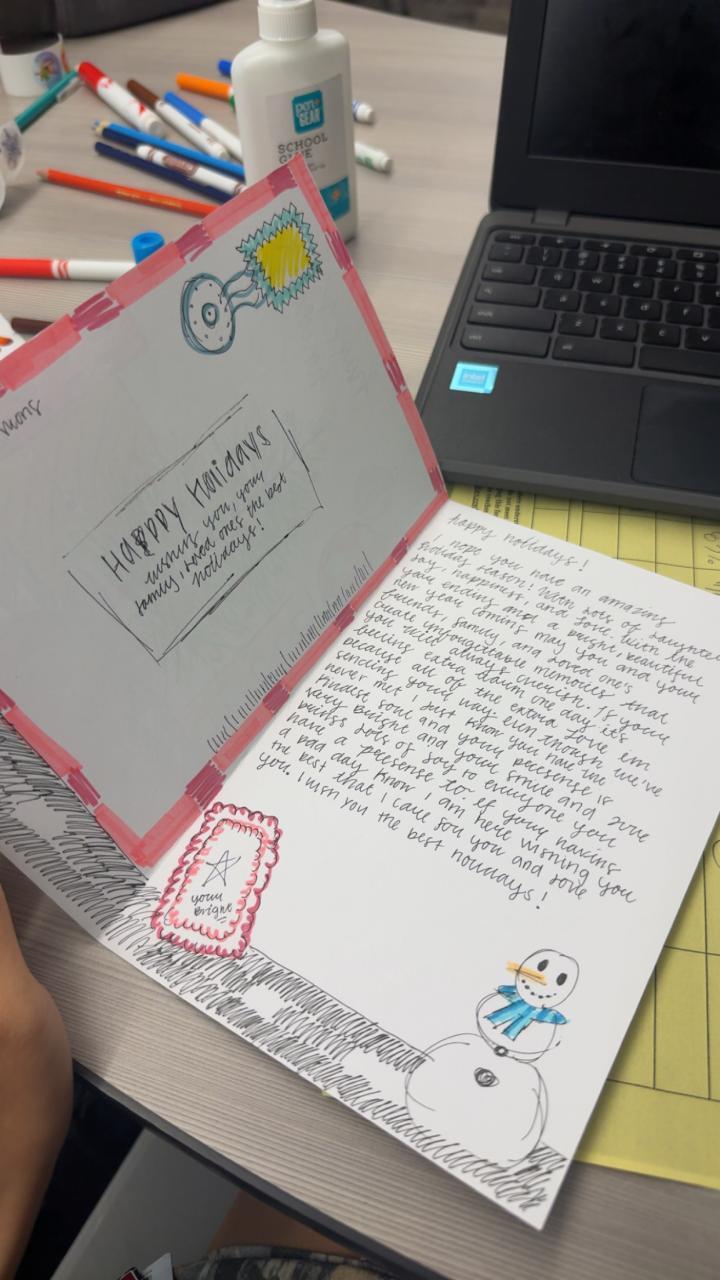 pen+
GEAR
SCHOOL
GLUE
intel
mons
HAPPY HOlidAYS
wishing you, your
family, & loved ones the best
holidays!
happy holidays!
I hope you have an amazing
Holiday season! With lots of laughter
Joy, happiness, and love. With the
year ending and a bright, beautiful
new year coming may you and your
friends, family, and loved one's
create unforgettable memories that
you will always cherish. If you're
feeling extra warm one day it's
because all of the extra love im
sending your way even though we've
never met I just know you have the
kindest soul and your precense is
very bright and your smile and love
brings lots of joy to everyone you
have a presense to if your having
a bad day know I am here wishing you
the best that I care for you and love
you. I wish you the best holidays!
your
Bright